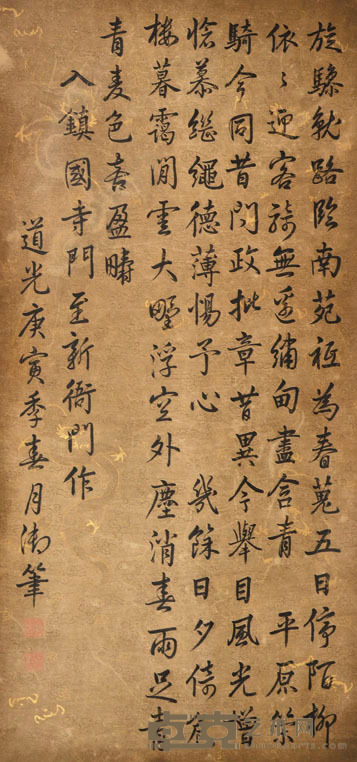 旋驂就路臨南苑祗為春蒐五日停陌柳
依〻迎客騎無邊繡甸盡含青 平原馀
騎今同昔問政批章昔異今舉目風光增
愴慕繼繩德薄惕予心 幾餘日夕倚
樓暮靄閒雲大野浮空外塵消春雨足喜
青麦色喜盈疇
入鎮國寺門至新衙門作
道光庚寅季春月御筆